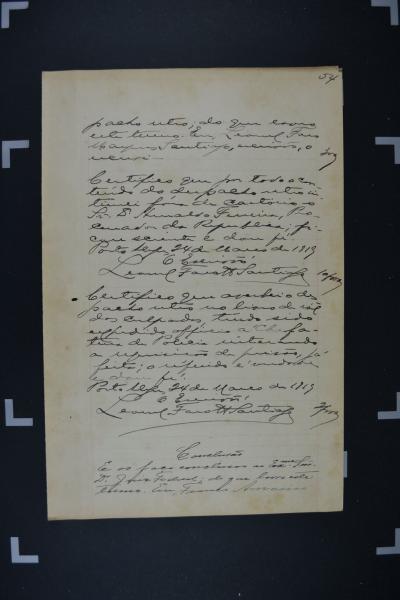 54
pacho retro; do que lavro
este termo. Eu, Leonel Faro
Santiago, escrivão, o
escrevi
Certifico que por todo o con-
teúdo do despacho retro in-
timei fóra de cartorio o
Sr. D. Annaldo Ferreira, Pro-
curador da Republica; fi-
cou sciente e dou fé.
Porto Alegre, 24 de Março de 1919
O Escrivão
Leonel Faro Santiago
Certifico que averbei o des-
pacho retro no livro de rol
dos culpados, tendo sido
expedido officio a Chefa-
tura de Policia reiterando
a requisição de prisão, já
feita; o referido é verdade
e dou fé.
Porto Alegre, 24 de Março de 1919
O Escrivão
Leonel Faro Santiago
Conclusão
E os faço conclusos ao Exmo. Snr.
Dr. Juiz Federal, do que lavro este
termo. Eu,